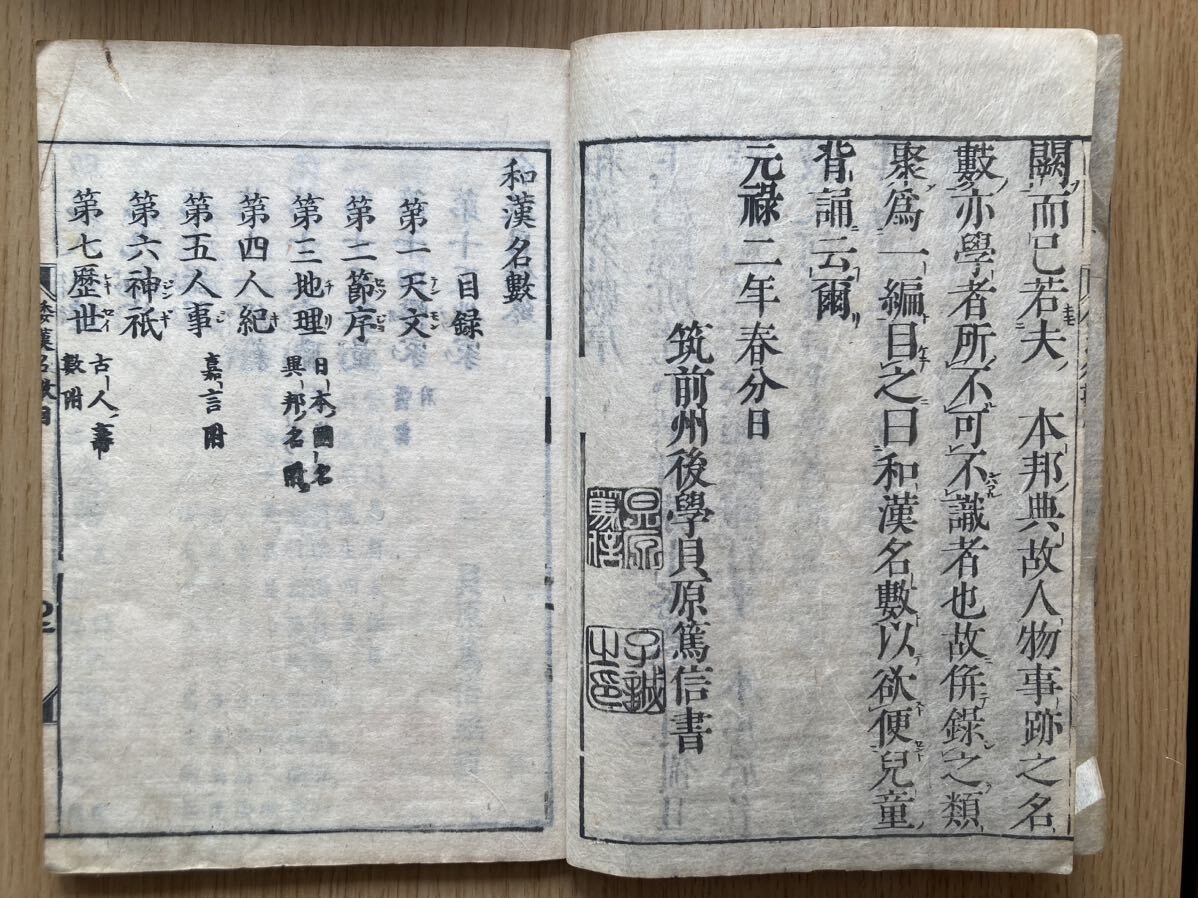 闕而已若夫 本邦典故人物事跡之名
數亦學者所不可不識者也故併錄之類
聚爲一編目之曰和漢名數以欲便兒童
背誦云爾
元祿二年春分日
筑前州後學貝原篤信書
貝原
篤信
子誠
之印
和漢名數
目録
第一天文
第二節序
第三地理 日本國名
異邦ノ名附
第四人紀
第五人事 嘉言附
第六神祇
第七歷世 古人ノ壽
數附
倭漢名數目